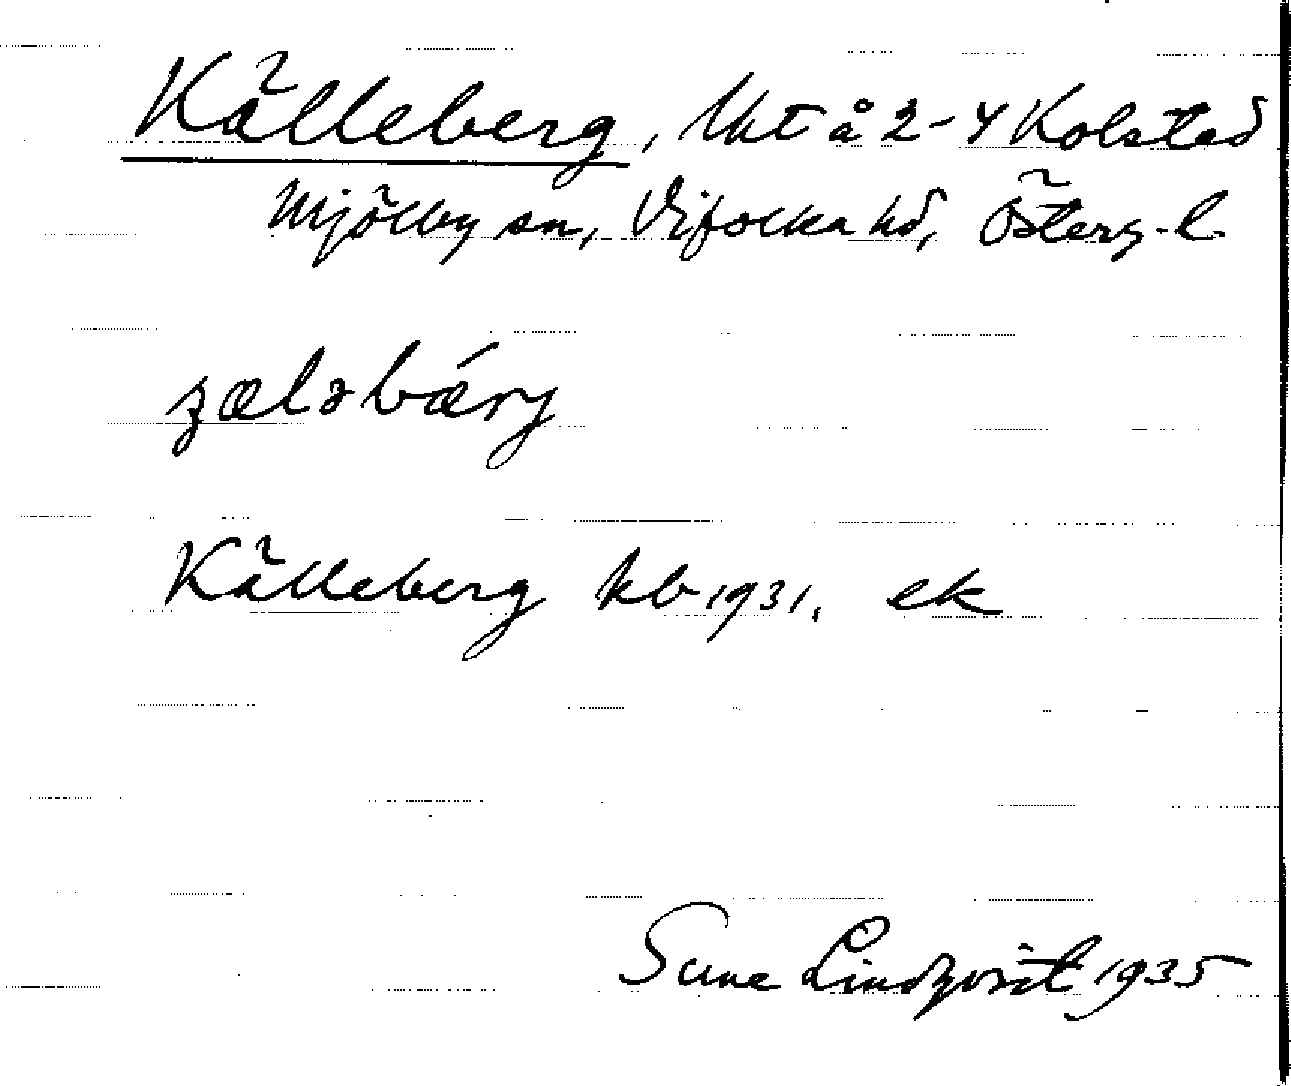 Källeberg, Ukt å 2-4 Kolstad
Mjölby sn, Vifolka hd, Österg. l.
ʒæləbǽrj
Källeberg kb 1931. ek
Sune Lindqvist 1935